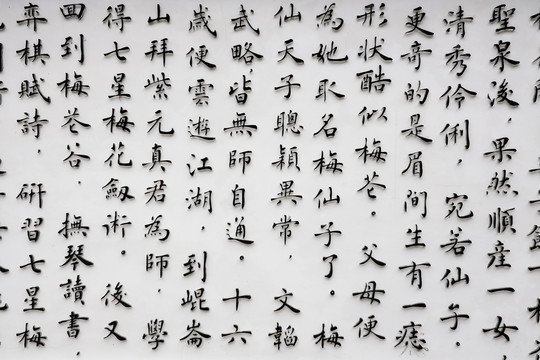 聖泉後，果然順産一女
清秀伶俐，宛若仙子。
更奇的是眉間生有一痣
形狀酷似梅花。父母便
為她取名梅仙子了。梅
仙天子聰穎異常，文韜
武略，皆無師自通。十六
歲便雲遊江湖，到崐崙
山拜紫元真君為師，學
得七星梅花劍術。後又
回到梅花谷，撫琴讀書，
弈棋賦詩，研習七星梅